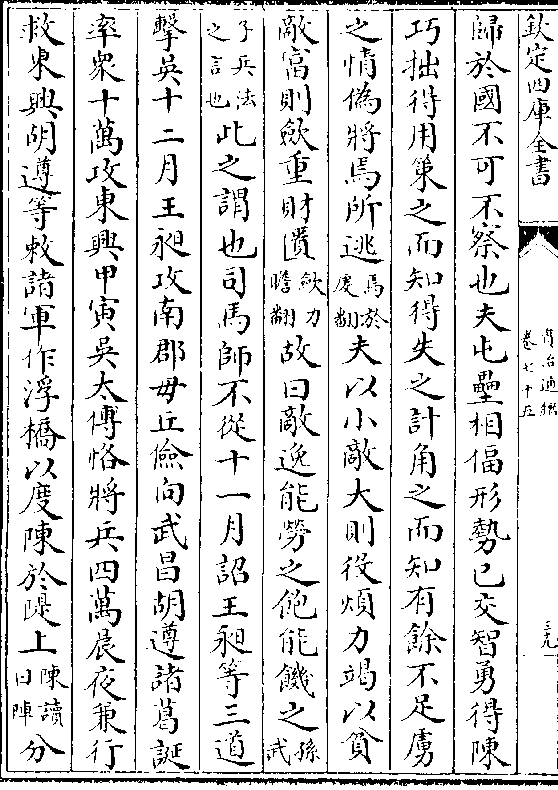 欽定四庫全書
資治通鑑
卷七十五
三九
歸於國不可不察也夫屯壘相偪形勢已交智勇得陳
巧拙得用策之而知得失之計角之而知有餘不足虜
之情偽將焉所逃焉於䖍翻夫以小敵大則役煩力竭以貧
敵富則斂重財匱斂力贍翻故曰敵逸能勞之飽能饑之孫武
子兵法之言也此之謂也司馬師不從十一月詔王昶等三道
擊吳十二月王昶攻南郡毋丘儉向武昌胡遵諸葛誕
率衆十萬攻東興甲寅吳太傅恪將兵四萬晨夜兼行
救東興胡遵等敕諸軍作浮橋以度陳於隄上陳讀曰陣分